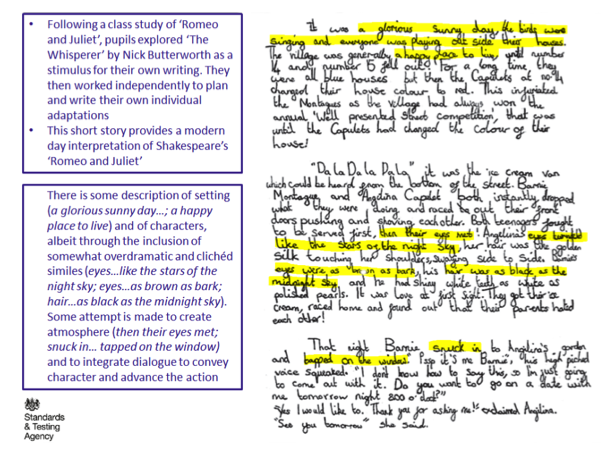 • Following a class study of 'Romeo
and Juliet', pupils explored 'The
Whisperer' by Nick Butterworth as a
stimulus for their own writing. They
then worked independently to plan
and write their own individual
adaptations
• This short story provides a modern
day interpretation of Shakespeare's
'Romeo and Juliet'
There is some description of setting
(a glorious sunny day...; a happy
place to live) and of characters,
albeit through the inclusion of
somewhat overdramatic and clichéd
similes (eyes...like the stars of the
night sky; eyes...as brown as bark;
hair...as black as the midnight sky).
Some attempt is made to create
atmosphere (then their eyes met;
snuck in... tapped on the window)
and to integrate dialogue to convey
character and advance the action
Standards
& Testing
Agency
It was a glorious sunny day, the birds were
singing and everyone was playing out side their houses.
The village was generally a happy place to live, until number
14 and number 5 fell out! For a long time, they
were all blue houses but then the Capulets at no14
changed their house colour to red. This infuriated
the Montagues as the village had always won the
annual 'Well presented Street competition', that was
until the Capulets had changed the colour of their
house!
"Da La Da La Dala" it was the ice cream van
which could be heard from the bottom of the street. Barnie
Montague and Anglina Capulet both instantly dropped
what they were doing and raced to out their front
doors pushing and shoving eachother. Both teenagers fought
to be served first, then their eyes met! Anglina's eyes
like the stars of the night sky, her hair was like golden
silk touching her shoulders, swaying side to side. Barnie's
eyes were as as bark, his hair was as black as the
midnight sky and he had shiny white teeth as white as
polished pearls. It was love at first sight. They got their ice
cream, raced home and found out that their parents hated
each other!
That night Barnie snuck in to Anglina's garden
and tapped on the window. it's me Barnie", his high piched
voice squeaked. "I don't know how to say this, so I'm just going
to come out with it. Do you want to go on a date with
me tomorrow night 8:00 o'clock?"
"Yes I would like to. Thank you for asking me!" exclaimed Anglina.
"See you tomorrow" she said.